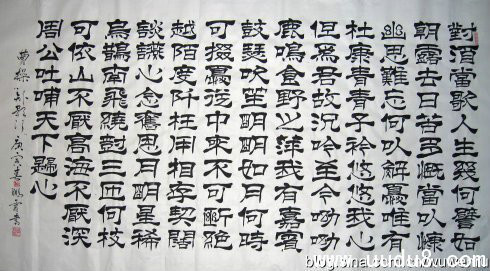 對酒當歌人生幾何譬如
朝露去日苦多慨當以慷
幽思難忘何以解憂唯有
杜康青青子衿悠悠我心
但為君故沉吟至今呦呦
鹿鳴食野之苹我有嘉賓
鼓瑟吹笙明明如月何時
可掇憂從中來不可斷絕
越陌度阡枉用相存契闊
談讌心念舊恩月明星稀
烏鵲南飛繞樹三匝何枝
可依山不厭高海不厭深
周公吐哺天下歸心
曹操短歌行庚寅春書